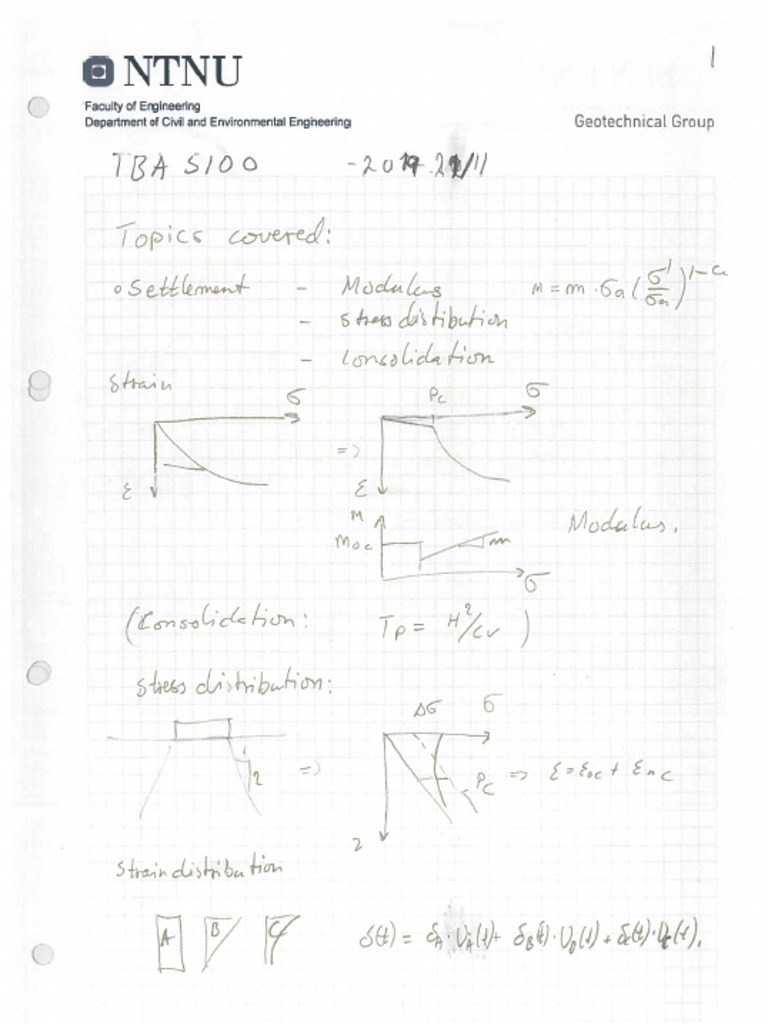 1
NTNU
Faculty of Engineering
Department of Civil and Environmental Engineering
Geotechnical Group
TBA 5100 - 2019
Topics covered:
o Settlement - Modulus M = m · σa (σ'/σa)^1-a
- stress distibution
- consolidation
strain
σ
ε
=>
Pc σ
ε
M
Moc
m
σ
Modulus.
(Consolidation: Tp = H²/cv )
Stress distribution:
1
2
=>
Δσ σ
Pc => ε = εoc + εnc
z
Strain distribution
A B C δ(t) = δA · UA(t) + δB(t) · UB(t) + δc(t) · Uc(t).